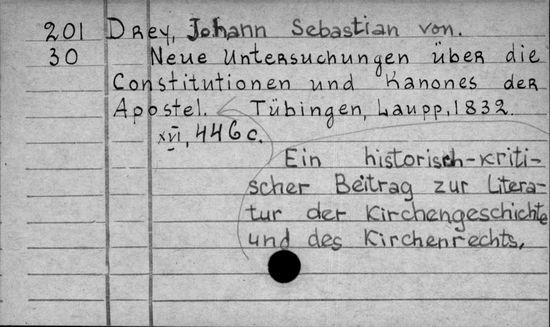 201 Drey, Johann Sebastian von.
30 Neue Untersuchungen über die
Constitutionen und Kanones der
Apostel. Tübingen, Laupp, 1832.
XVI, 446 c.
Ein historisch-kriti-
scher Beitrag zur Litera-
tur der Kirchengeschichte
und des Kirchenrechts.